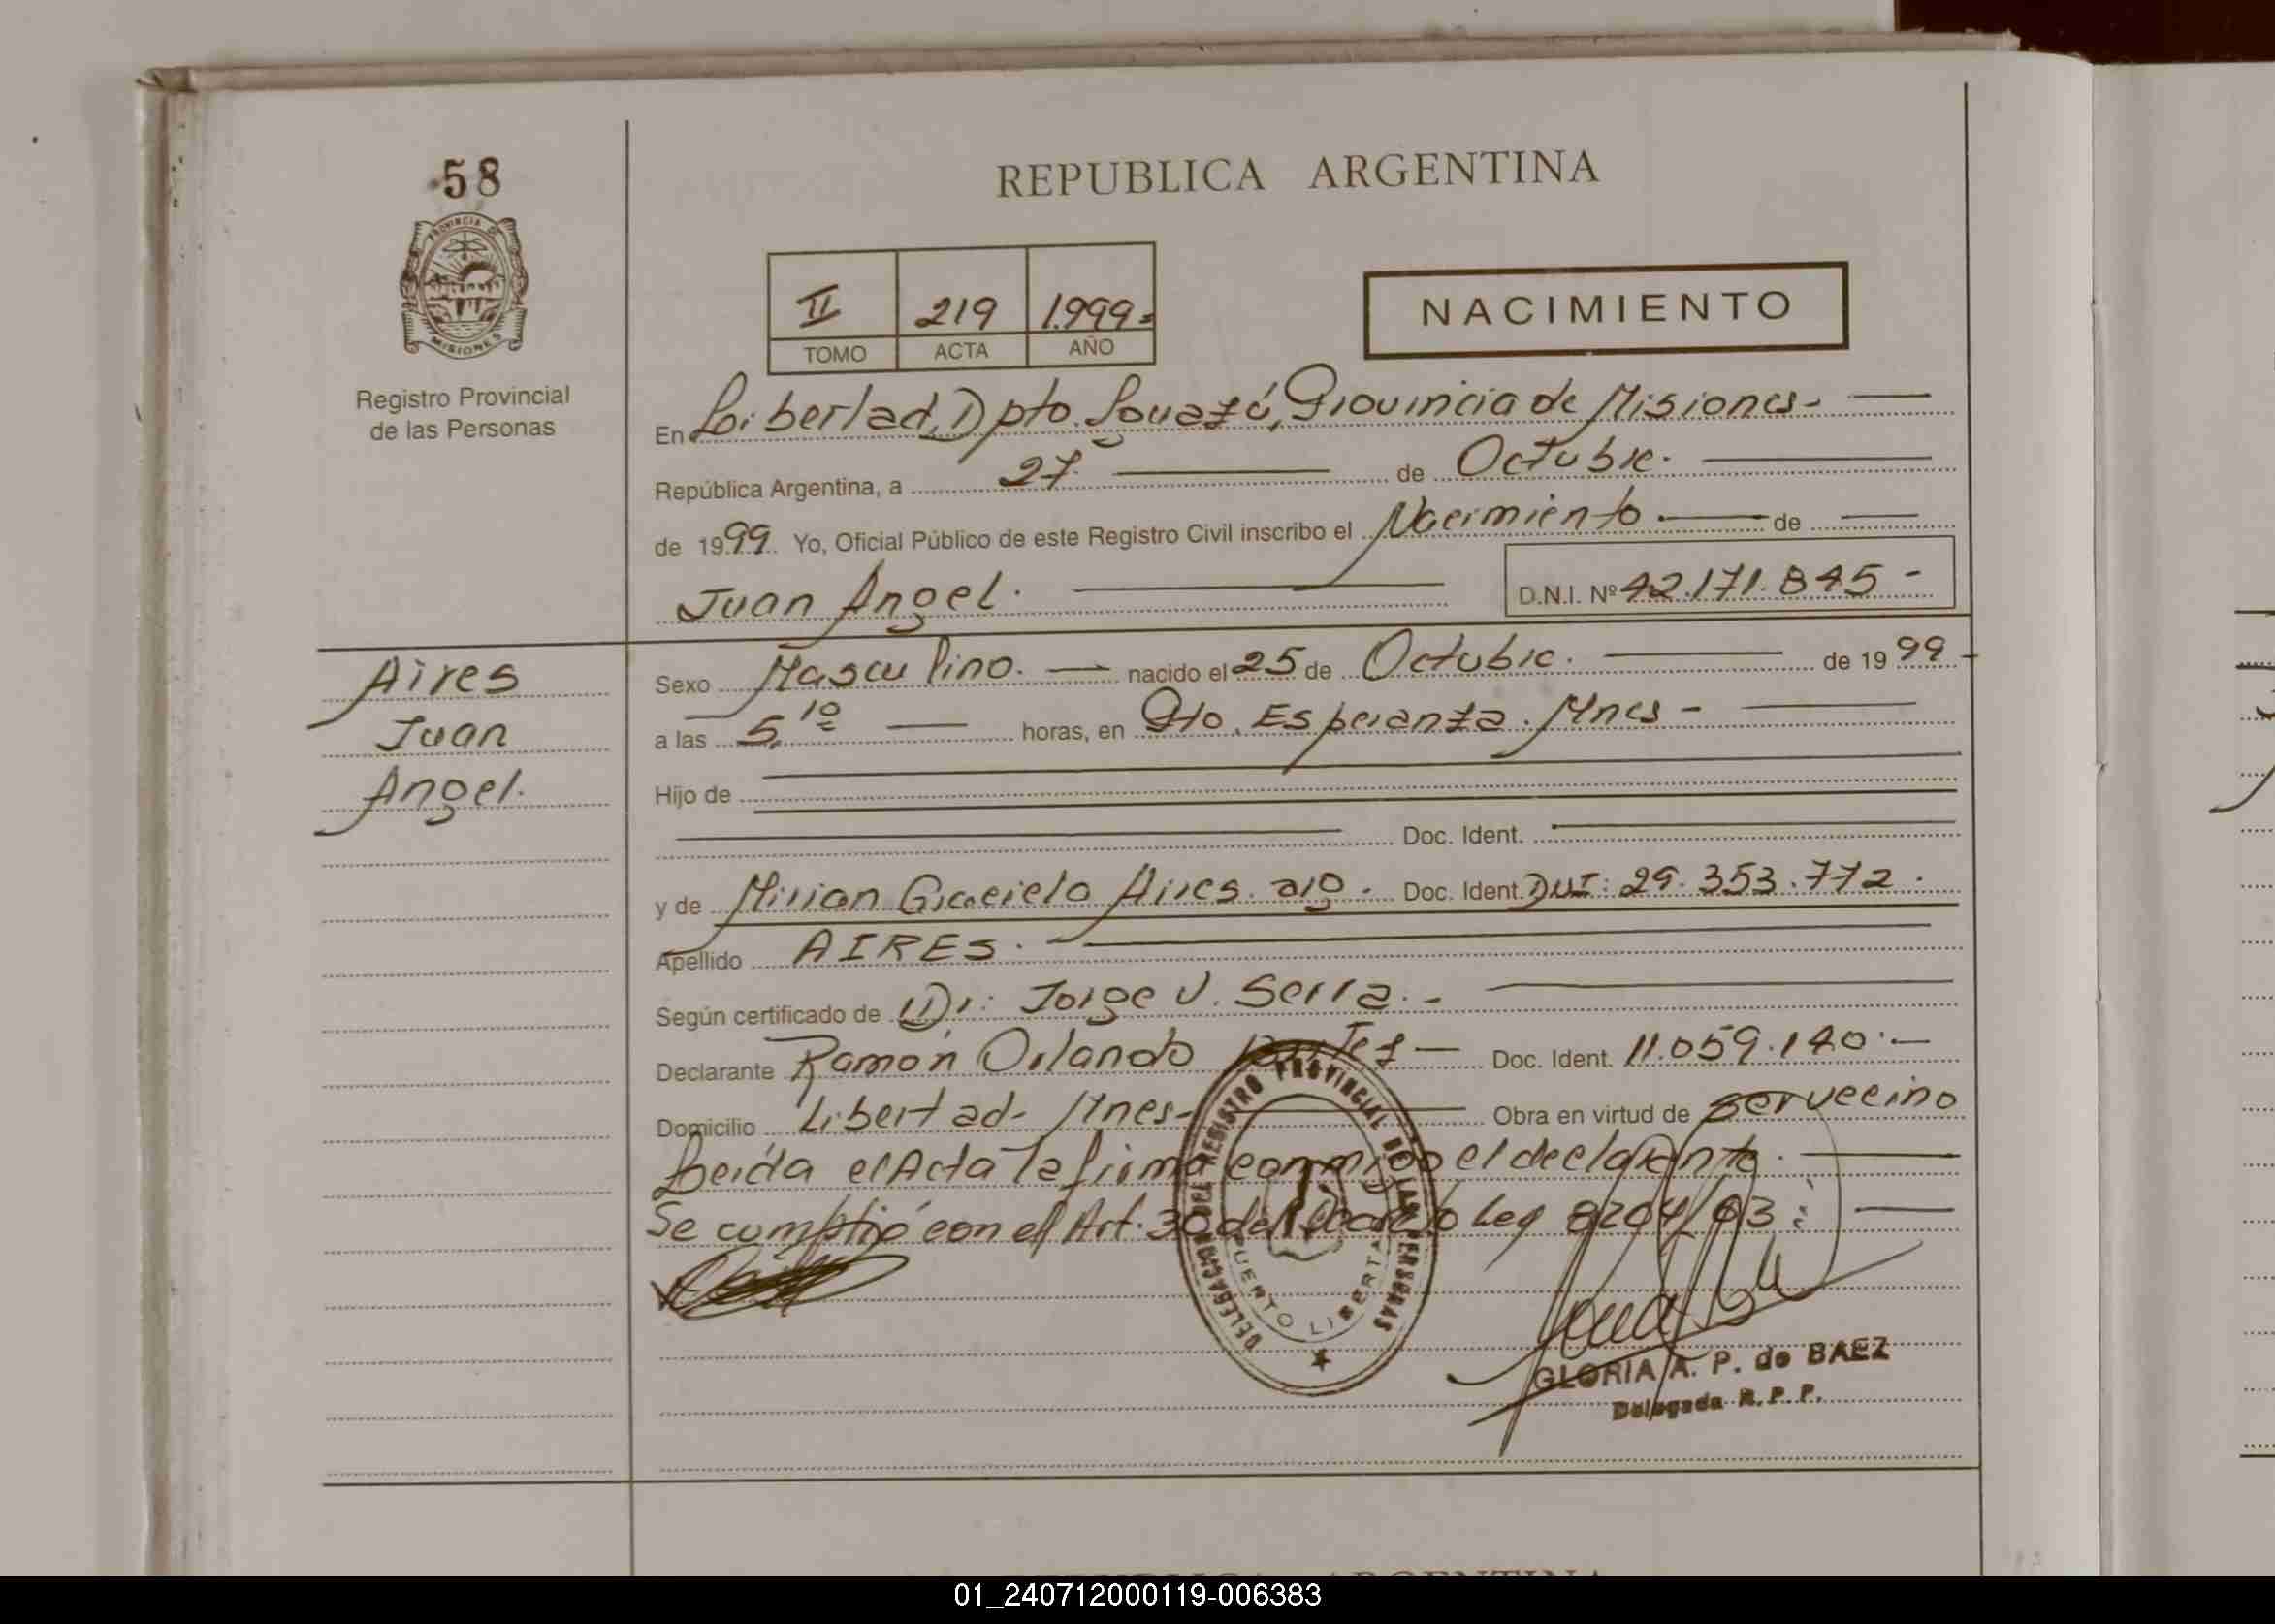 58
REPUBLICA ARGENTINA
PROVINCIA DE
MISIONES
Registro Provincial
de las Personas
II 219 1.999.-
TOMO ACTA AÑO
NACIMIENTO
En Libertad, Dpto. Iguazú, Provincia de Misiones.-
República Argentina, a 27 de Octubre.
de 1999. Yo, Oficial Público de este Registro Civil inscribo el Nacimiento de
Juan Angel. D.N.I. Nº 42.171.845 -
Aires
Juan
Angel.
Sexo Masculino. nacido el 25 de Octubre. de 1999
a las 5,10 horas, en Pto. Esperanza. Mnes -
Hijo de
Doc. Ident.
y de Mirian Graciela Aires. arg. Doc. Ident. DNI: 29.353.772.
Apellido AIRES.
Según certificado de Dr: Jorge V. Serra.-
Declarante Ramón Orlando Doc. Ident. 11.059.140.-
Domicilio Libertad- Mnes- Obra en virtud de ser vecino
Leída el Acta la firma conmigo el declarante.
Se cumplió con el Art. 30 del Decreto Ley 8204/63:
DELEGACION DEL REGISTRO PROVINCIAL DE LAS PERSONAS
PUERTO LIBERTAD
GLORIA A. P. de BAEZ
Delegada R. P. P.
REPUBLICA ARGENTINA
01_240712000119-006383